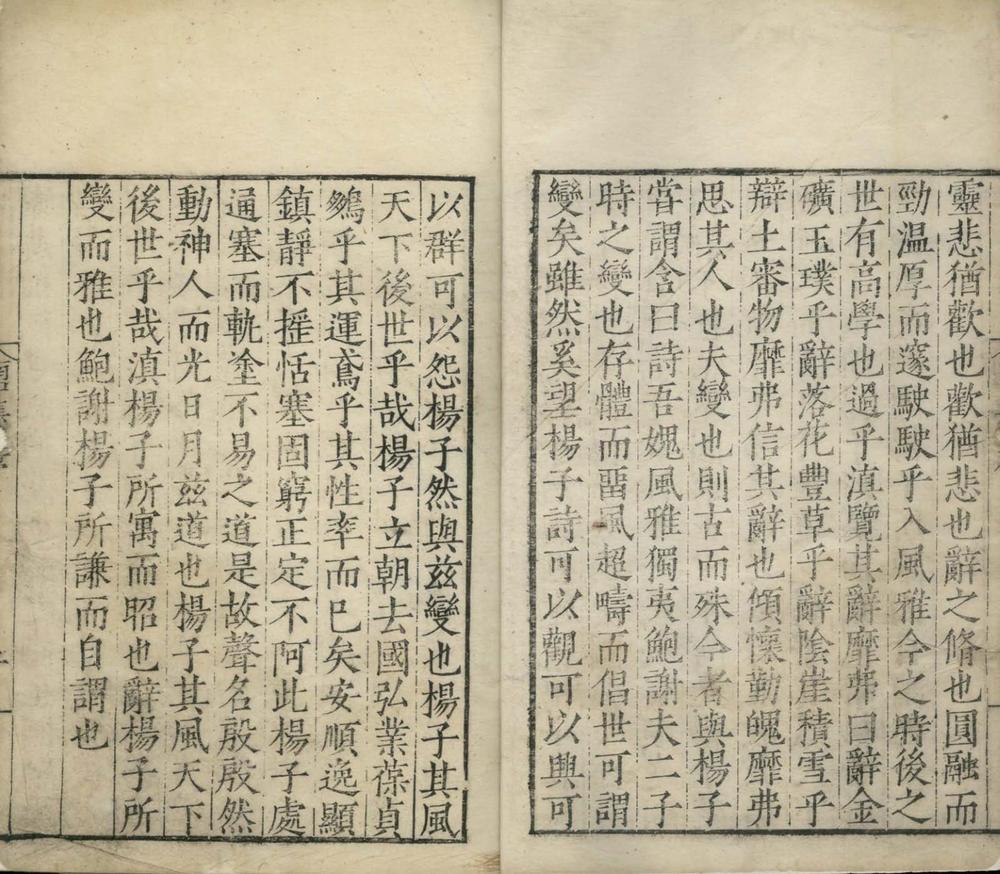 靈悲猶歡也歡猶悲也辭之脩也圓融而
勁温厚而邃駛駛乎入風雅今之時後之
世有高學也過乎滇覽其辭靡弗曰辭金
礦玉璞乎辭落花豐草乎辭陰崖積雪乎
辯土審物靡弗信其辭也傾懷勤魄靡弗
思其人也夫變也則古而殊今者與楊子
嘗謂含曰詩吾媿風雅獨夷鮑謝夫二子
時之變也存體而畱風超疇而倡世可謂
變矣雖然奚望楊子詩可以觀可以興可
以群可以怨楊子然與茲變也楊子其風
天下後世乎哉楊子立朝去國弘業葆貞
鵷乎其運鳶乎其性率而已矣安順逸顯
鎮靜不摇恬塞固窮正定不阿此楊子處
通塞而軌塗不易之道是故聲名殷殷然
動神人而光日月茲道也楊子其風天下
後世乎哉滇楊子所寓而昭也辭楊子所
變而雅也鮑謝楊子所謙而自謂也